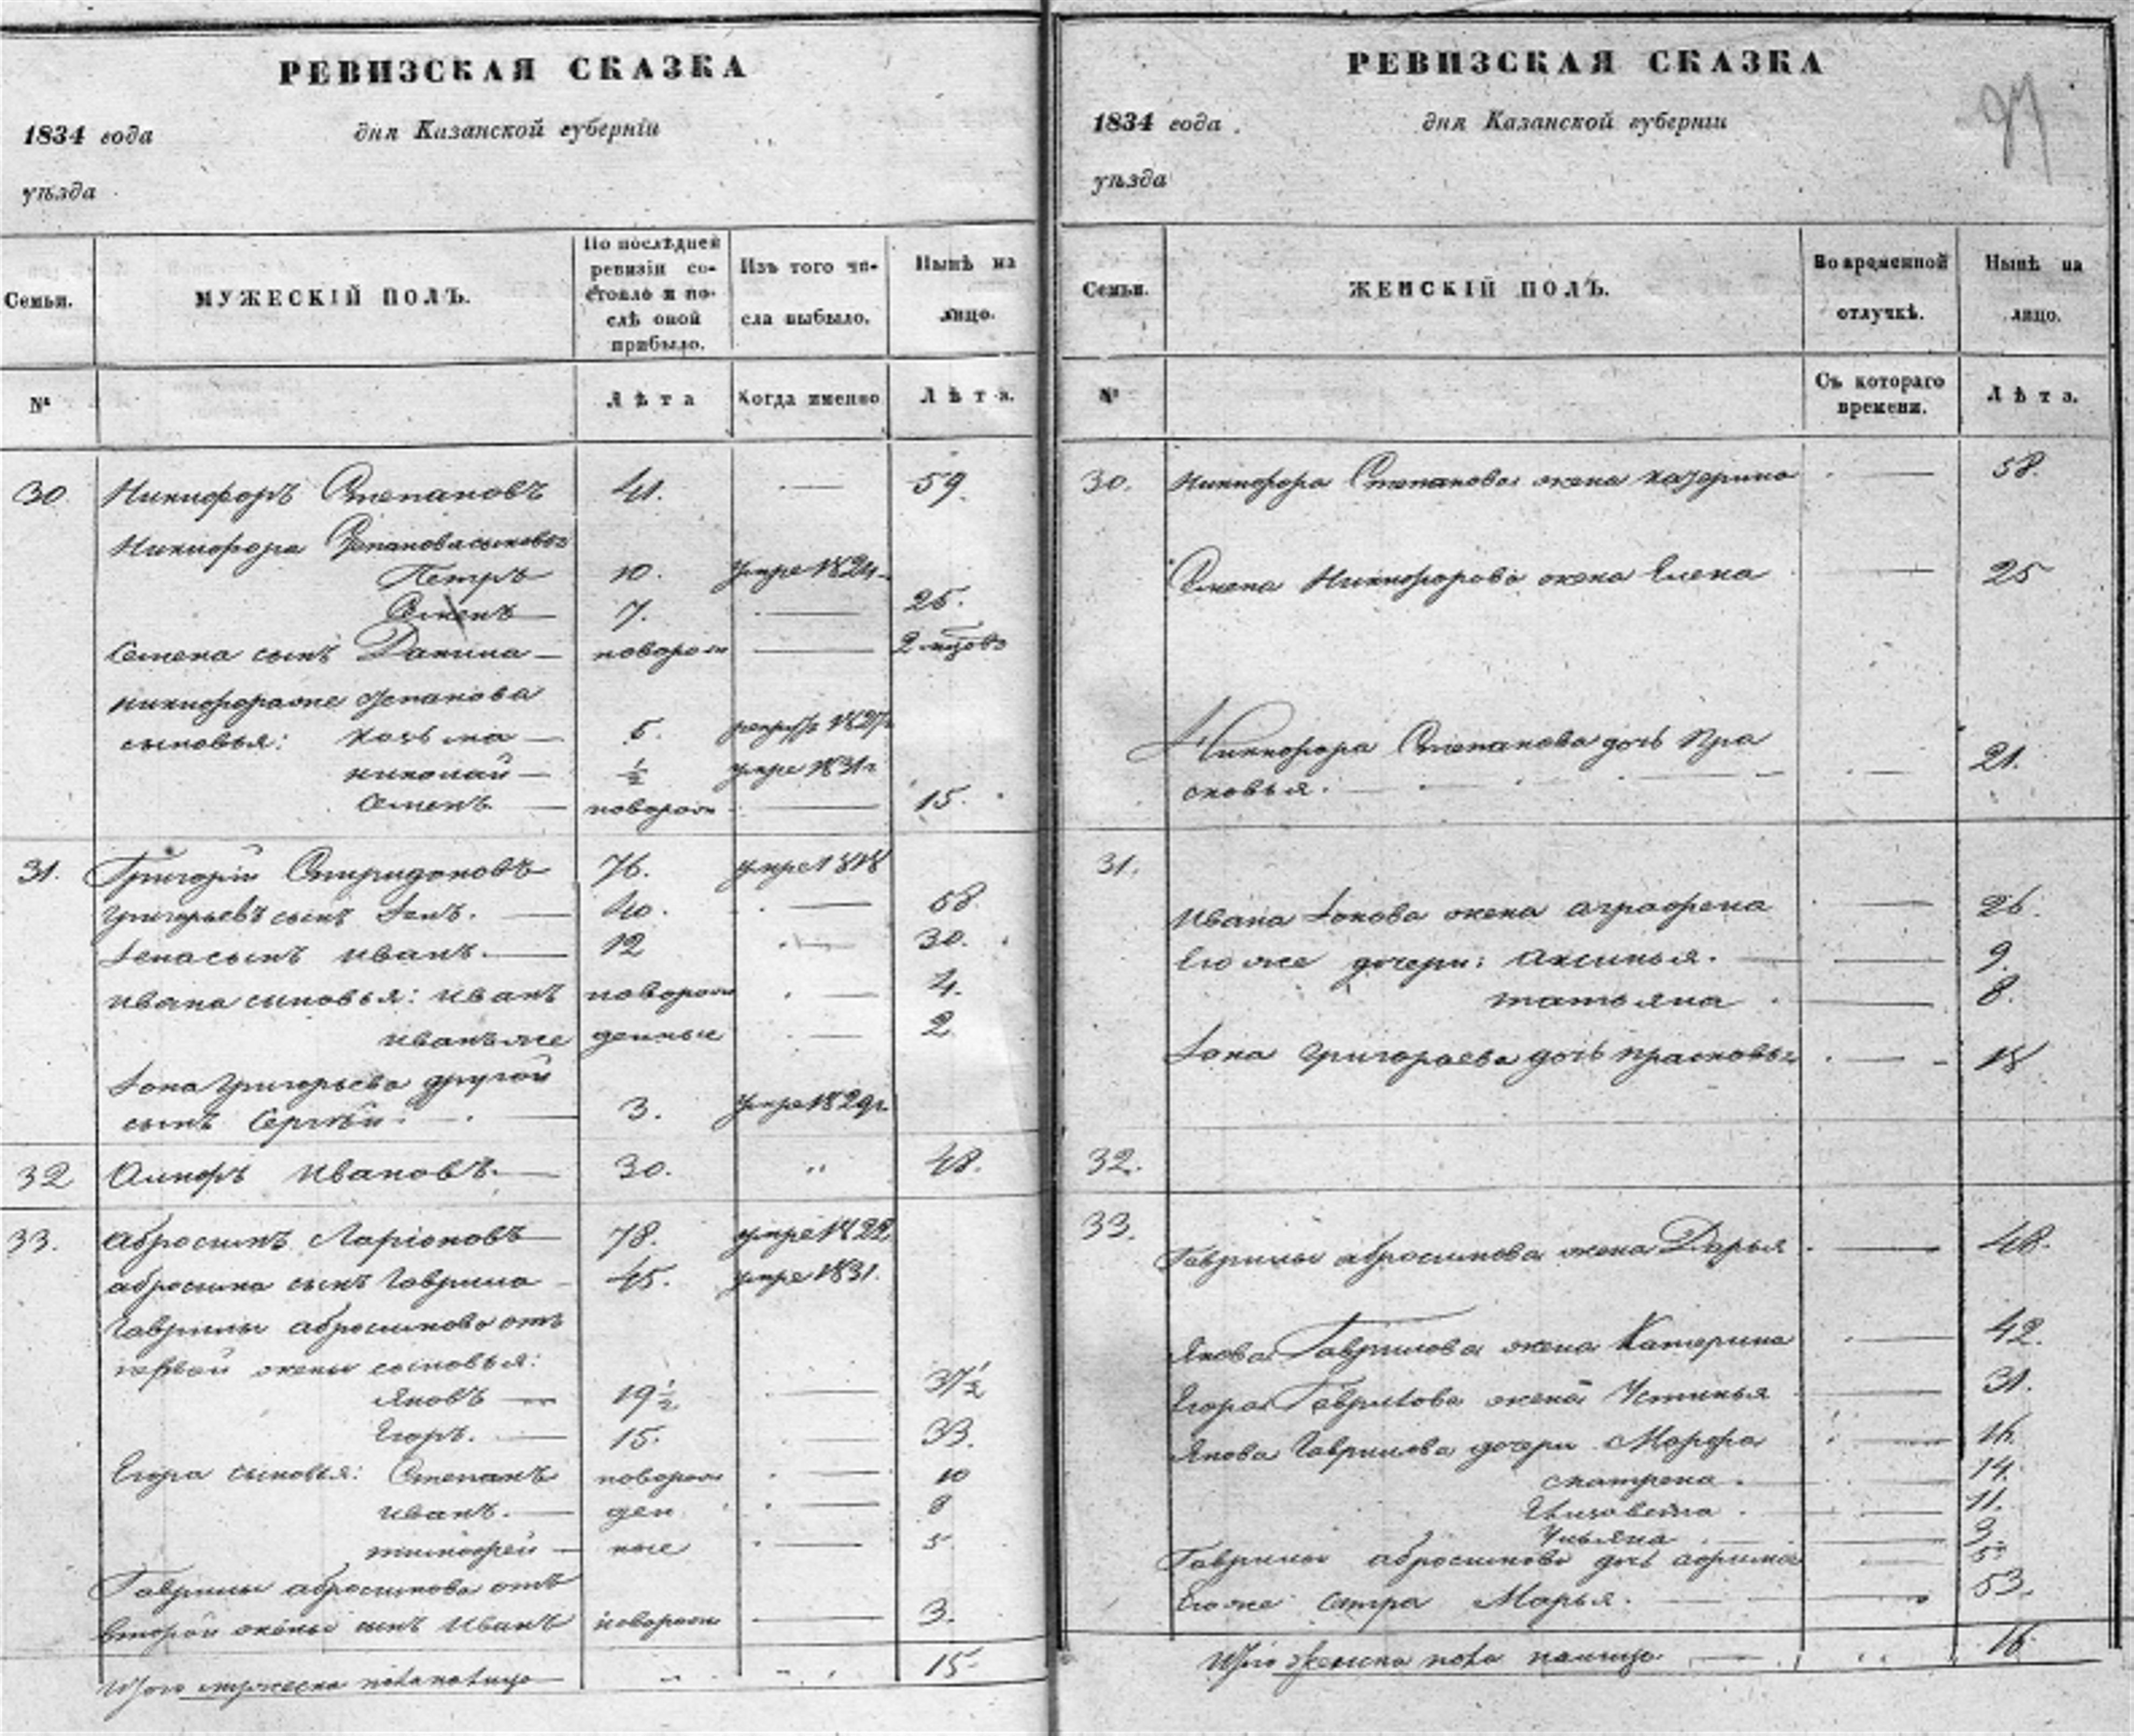 РЕВИЗСКАЯ СКАЗКА
1834 года дня Казанской губерніи
уѣзда
Семьи. МУЖЕСКІЙ ПОЛЪ. По послѣдней ревизіи состояло и послѣ оной прибыло. Изъ того числа выбыло. Нынѣ на лицо.
№ Лѣта Когда именно Лѣта.
30 Никифоръ Степановъ 41. — 59.
Никифора Степанова сыновья
Петръ 10. умре 1824
Семенъ 7. — 25.
Семена сынъ Данила —новорож — 2 мцовъ
никифора же степанова
сыновья: козьма — 5. 1827
николай — ½ умре 1831г
Семенъ — новорож — 15.
31. Григорій Спиридоновъ 76. умре 1818
григорьевъ сынъ Іонъ. — 40. — 58
Іона сынъ иванъ. — 12 — 30.
ивана сыновья: иванъ новорож — 4.
иванъ же денные — 2
Іона григорьева другой
сынъ Сергѣй. — 3. умре 1829г.
32 Ивановъ. — 30. " 48.
33. Абросимъ Ларіоновъ 78. умре 1822
абросима сынъ Гаврила — 45. умре 1831.
Гаврилы абросимова отъ
первой жены сыновья:
Яковъ — 19½ — 37½
Егоръ. — 15. — 33.
Егора сыновья: Степанъ новорож — 10
иванъ. — ден — 8
тимофей — ные — 5
Гаврилы абросимова отъ
второй жены сынъ иванъ новорож — 3.
Итого мужеска пола налицо 15.
РЕВИЗСКАЯ СКАЗКА
97
1834 года дня Казанской губерніи
уѣзда
Семьи. ЖЕНСКІЙ ПОЛЪ. Во временной отлучкѣ. Нынѣ на лицо.
№ Съ котораго времени. Лѣта.
30. Никифора Степанова жена — 58.
Семена Никифорова жена Елена — 25
Никифора Степанова дочь Пра
сковья. — 21.
31.
Ивана Іонова жена аграфена — 26.
Его же дочери: аксинья. — 9.
татьяна — 8.
Іона григорьева дочь прасковья — 18
32.
33.
Гаврилы абросимова жена Дарья — 48.
Якова Гаврилова жена Катерина — 42.
Егора Гаврилова жена Устинья — 31.
Якова Гаврилова дочери Марфа — 16.
матрена — 14.
Елизавета — 11.
Ульяна — 9.
Гаврилы абросимова дочь — 5.
Его же сестра Марья. — 53.
Итого женска пола налицо — 16